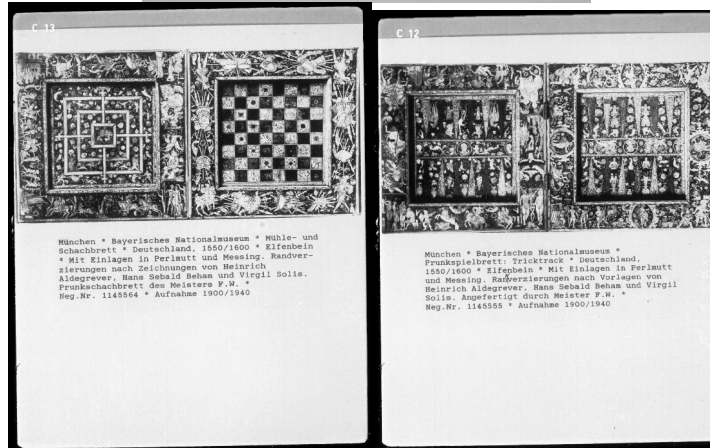 C 13
München * Bayerisches Nationalmuseum * Mühle- und
Schachbrett * Deutschland, 1550/1600 * Elfenbein
* Mit Einlagen in Perlmutt und Messing. Randver-
zierungen nach Zeichnungen von Heinrich
Aldegrever, Hans Sebald Beham und Virgil Solis.
Prunkschachbrett des Meisters F.W. *
Neg.Nr. 1145564 * Aufnahme 1900/1940
C 12
München * Bayerisches Nationalmuseum *
Prunkspielbrett: Tricktrack * Deutschland,
1550/1600 * Elfenbein * Mit Einlagen in Perlmutt
und Messing. Randverzierungen nach Vorlagen von
Heinrich Aldegrever, Hans Sebald Beham und Virgil
Solis. Angefertigt durch Meister F.W. *
Neg.Nr. 1145555 * Aufnahme 1900/1940